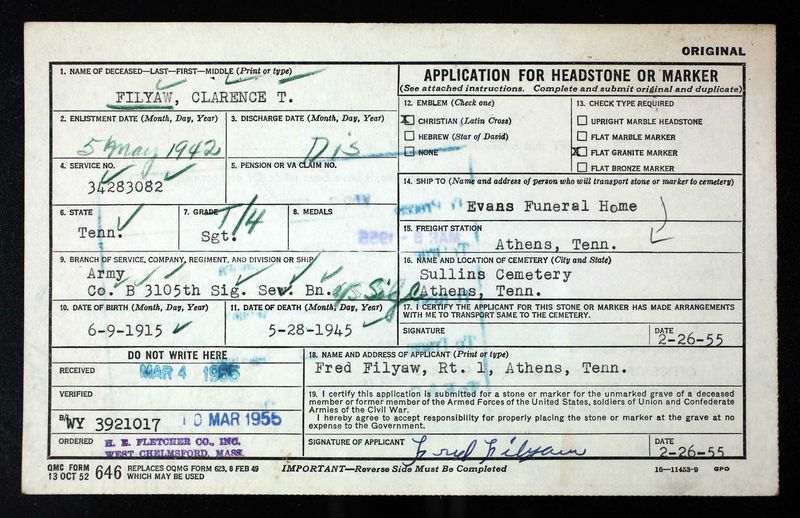 ORIGINAL
1. NAME OF DECEASED—LAST—FIRST—MIDDLE (Print or type)
FILYAW, CLARENCE T.
APPLICATION FOR HEADSTONE OR MARKER
(See attached instructions. Complete and submit original and duplicate)
2. ENLISTMENT DATE (Month, Day, Year)
5 May 1942
3. DISCHARGE DATE (Month, Day, Year)
Dis
12. EMBLEM (Check one)
X CHRISTIAN (Latin Cross)
HEBREW (Star of David)
NONE
13. CHECK TYPE REQUIRED
UPRIGHT MARBLE HEADSTONE
FLAT MARBLE MARKER
X FLAT GRANITE MARKER
FLAT BRONZE MARKER
4. SERVICE NO.
34283082
5. PENSION OR VA CLAIM NO.
14. SHIP TO (Name and address of person who will transport stone or marker to cemetery)
Evans Funeral Home
6. STATE
Tenn.
7. GRADE
T/4
Sgt.
8. MEDALS
15. FREIGHT STATION
Athens, Tenn.
9. BRANCH OF SERVICE, COMPANY, REGIMENT, AND DIVISION OR SHIP
Army
Co. B 3105th Sig. Sev. Bn.
16. NAME AND LOCATION OF CEMETERY (City and State)
Sullins Cemetery
Athens, Tenn.
10. DATE OF BIRTH (Month, Day, Year)
6-9-1915
11. DATE OF DEATH (Month, Day, Year)
5-28-1945
17. I CERTIFY THE APPLICANT FOR THIS STONE OR MARKER HAS MADE ARRANGEMENTS
WITH ME TO TRANSPORT SAME TO THE CEMETERY.
SIGNATURE
DATE
2-26-55
DO NOT WRITE HERE
RECEIVED
MAR 4 1955
18. NAME AND ADDRESS OF APPLICANT (Print or type)
Fred Filyaw, Rt. 1, Athens, Tenn.
VERIFIED
19. I certify this application is submitted for a stone or marker for the unmarked grave of a deceased
member or former member of the Armed Forces of the United States, soldiers of Union and Confederate
Armies of the Civil War.
I hereby agree to accept responsibility for properly placing the stone or marker at the grave at no
expense to the Government.
B/L WY 3921017
10 MAR 1955
ORDERED
H. E. FLETCHER CO., INC.
WEST CHELMSFORD, MASS.
SIGNATURE OF APPLICANT
Fred Filyaw
DATE
2-26-55
QMC FORM
13 OCT 52
646
REPLACES OQMG FORM 623, 8 FEB 49
WHICH MAY BE USED
IMPORTANT—Reverse Side Must Be Completed
16—11453-9 GPO